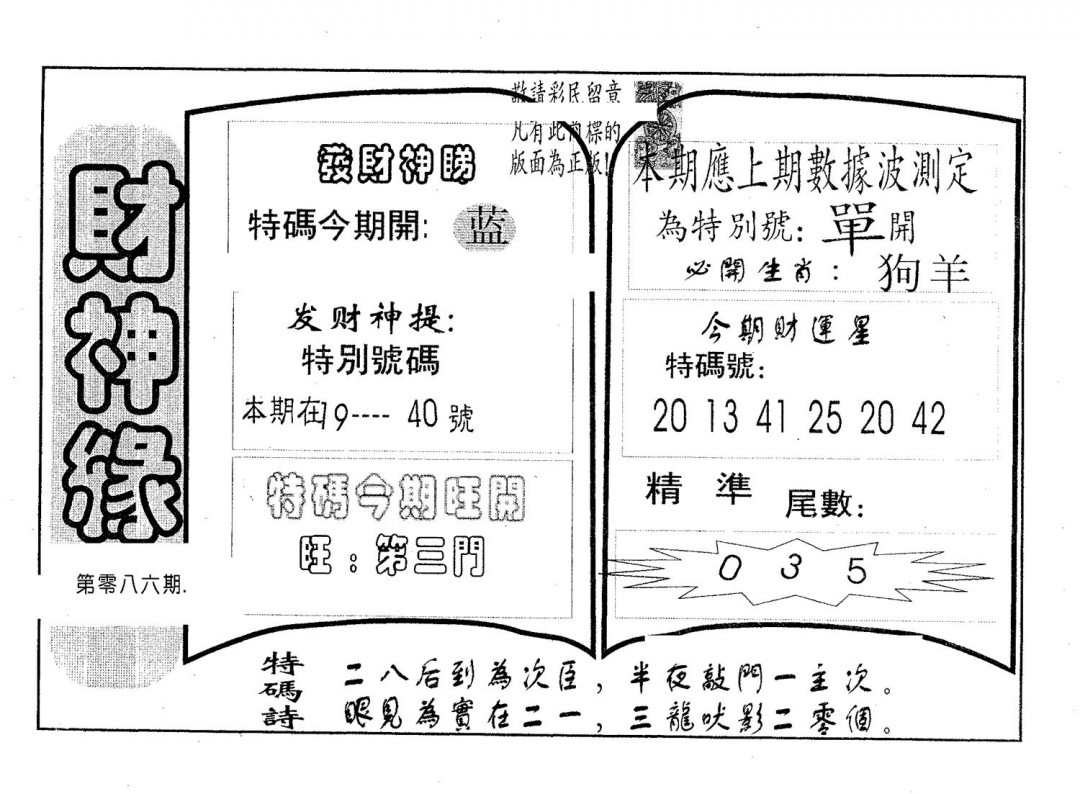 財神緣
第零八六期.
敬請彩民留意
凡有此商標的
版面為正版!
發財神睇
特碼今期開: 蓝
发财神提:
特別號碼
本期在19---- 40號
特碼今期旺開
旺:第三門
本期應上期數據波測定
為特別號: 單開
必開生肖: 狗羊
今期財運星
特碼號:
20 13 41 25 20 42
精準 尾數:
0 3 5
特碼詩
二八后到為次臣,半夜敲門一主次。
眼見為實在二一,三龍吠影二零個。